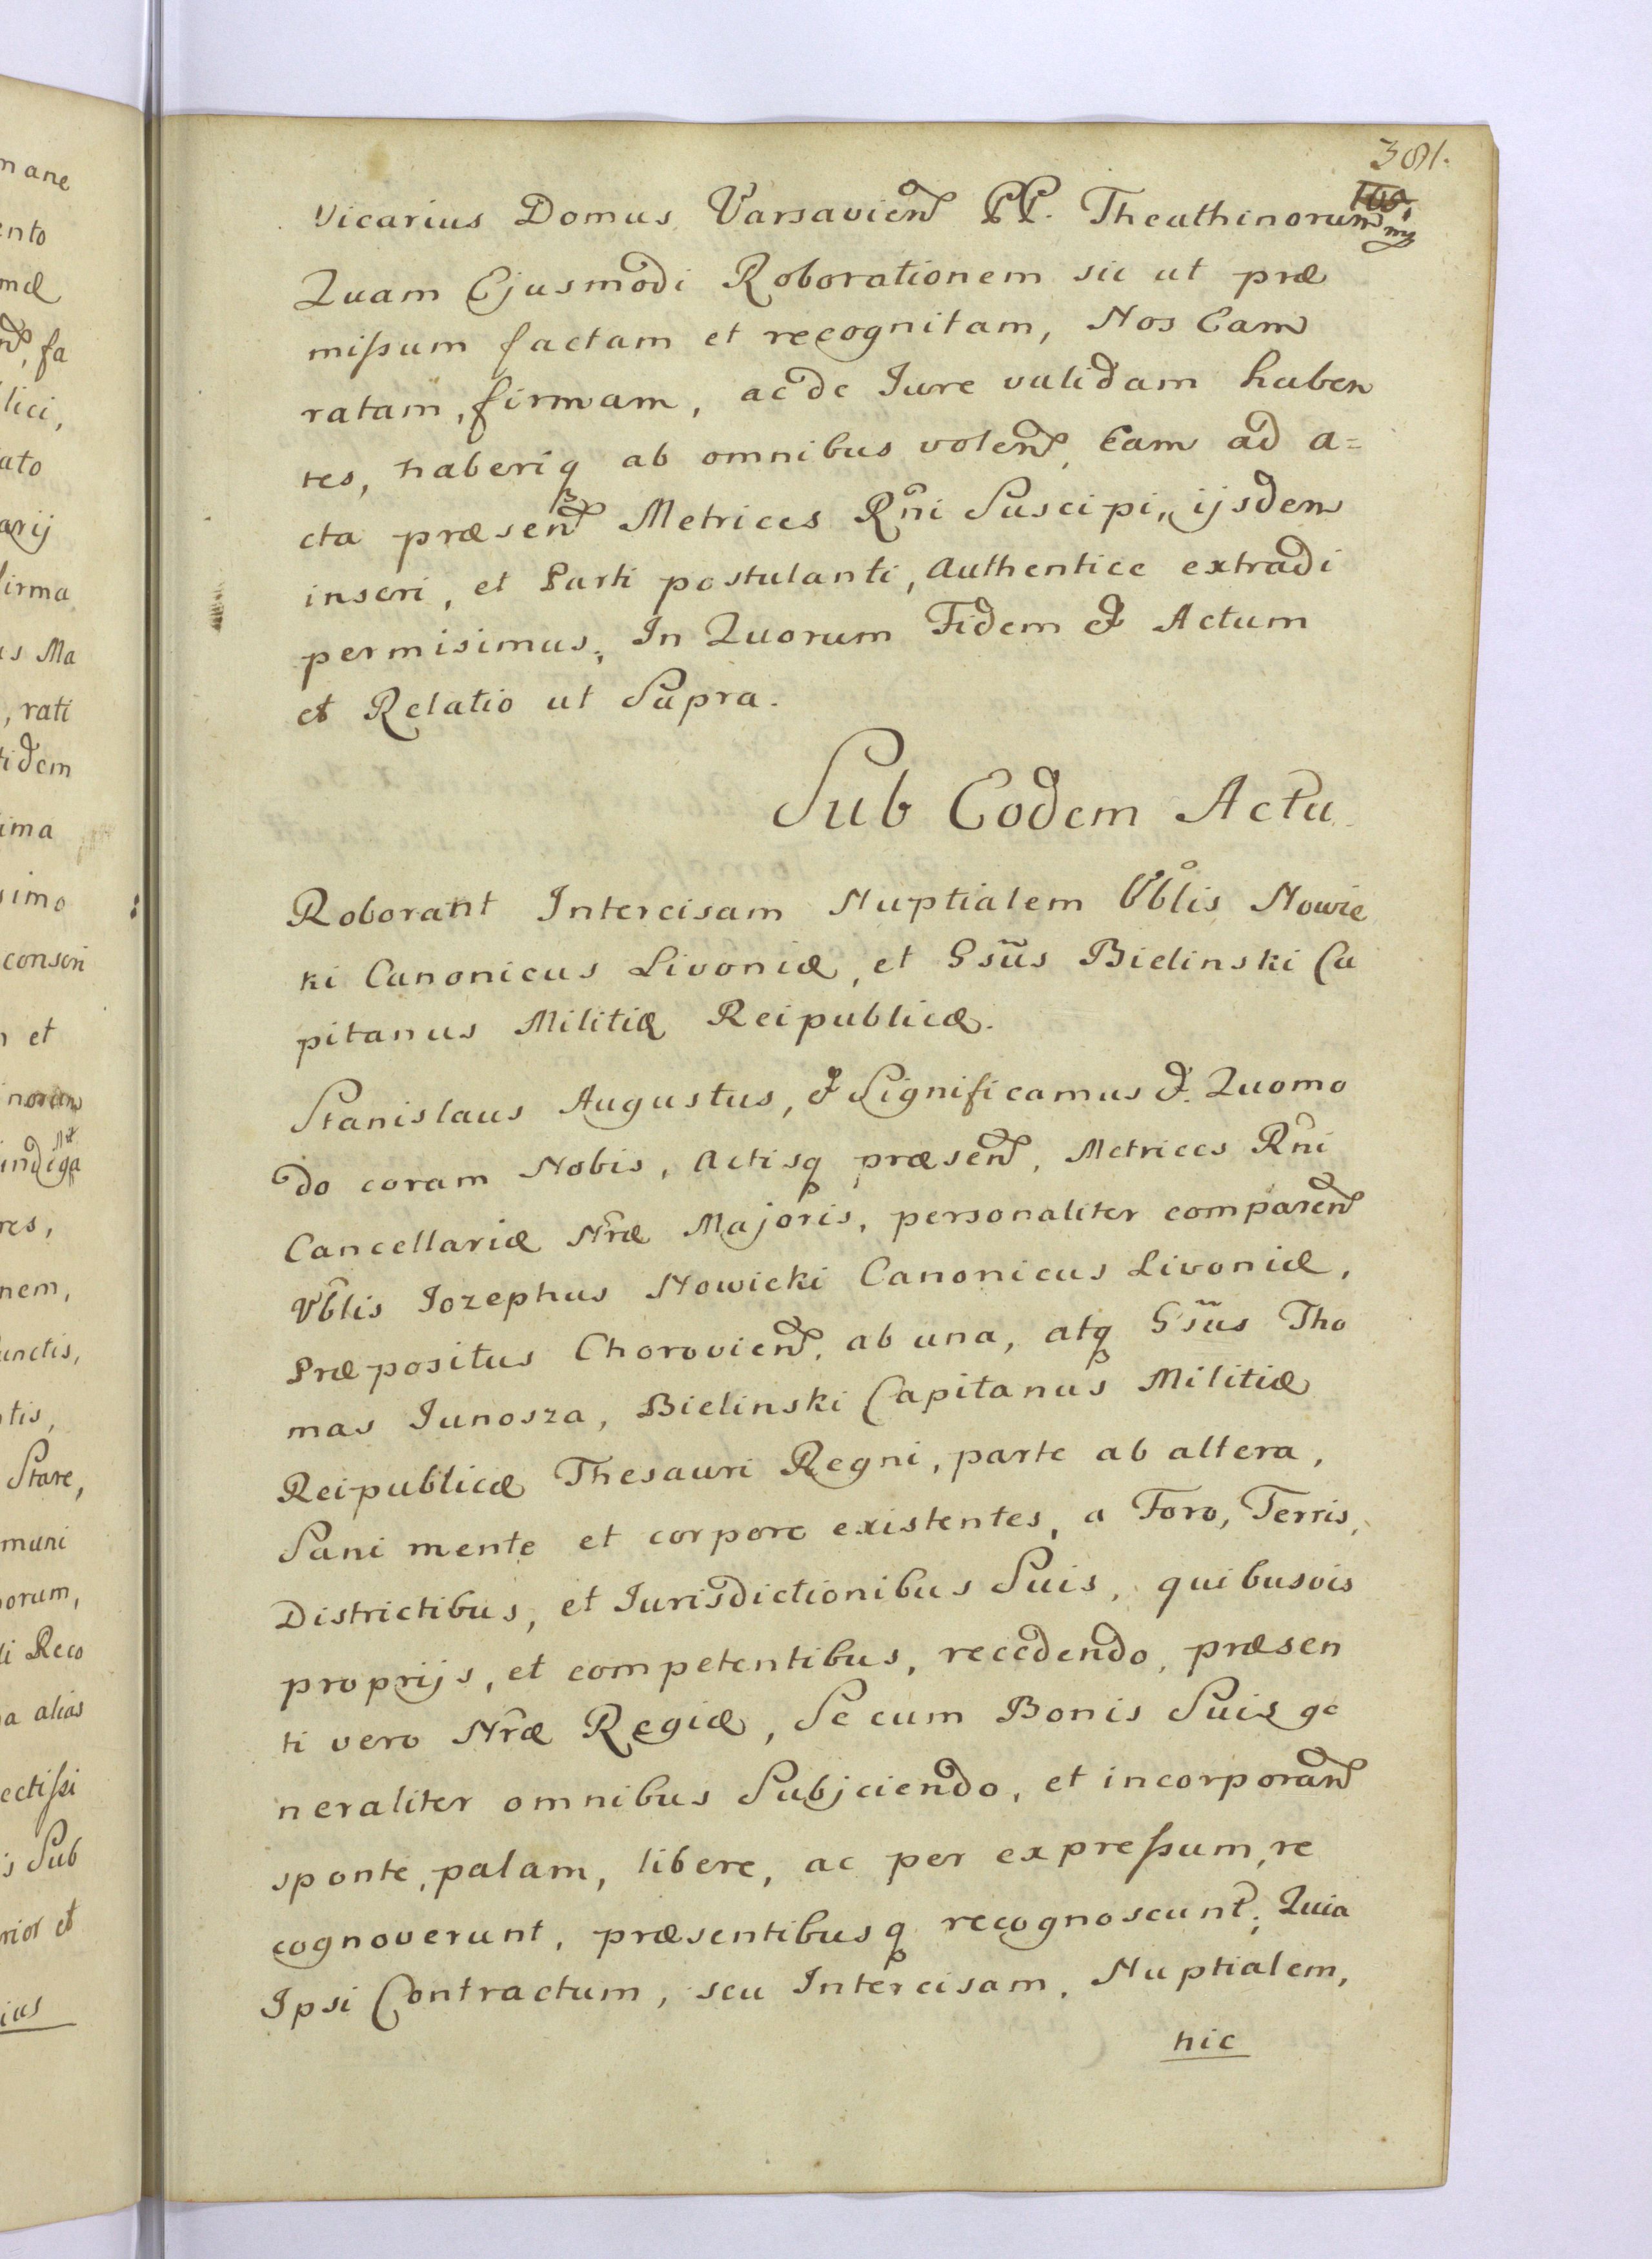 381.
100.
Vicarius Domus Varsavień PP. Theathinorum mp
Quam Ejusmodi Roborationem sic ut præ
mißum factam et recognitam, Nos Eam
ratam, firmam, ac de Jure validam haben
tes, haberiq ab omnibus voleń, Eam ad a=
cta præseń Metrices Rñi Suscipi, ijsdem
inseri, et Parti postulanti, Authentice extradi
permisimus. In Quorum Fidem & Actum
et Relatio ut Supra.
Sub Eodem Actu
Roborant Intercisam Nuptialem Vblis Nowic
ki Canonicus Livoniæ, et Gsũs Bielinski Ca
pitanus Militiæ Reipublicæ.
Stanislaus Augustus, & Significamus &. Quomo
do coram Nobis, Actisq præseń, Metrices Rñi
Cancellariæ Nræ Majoris, personaliter compareń
Vblis Jozephus Nowicki Canonicus Livoniæ,
Præpositus Chorovień, ab una, atq Gsũs Tho
mas Junosza, Bielinski Capitanus Militiæ
Reipublicæ Thesauri Regni, parte ab altera,
Sani mente et corpore existentes, a Foro, Terris,
Districtibus, et Jurisdictionibus Suis, quibusvis
proprijs, et competentibus, recedendo, præsen
ti vero Nræ Regiæ, Se cum Bonis Suis ge
neraliter omnibus Subjciendo, et incorporań
sponte, palam, libere, ac per expreßum, re
cognoverunt, præsentibusq recognoscunt; Quia
Ipsi Contractum, seu Intercisam, Nuptialem,
hic